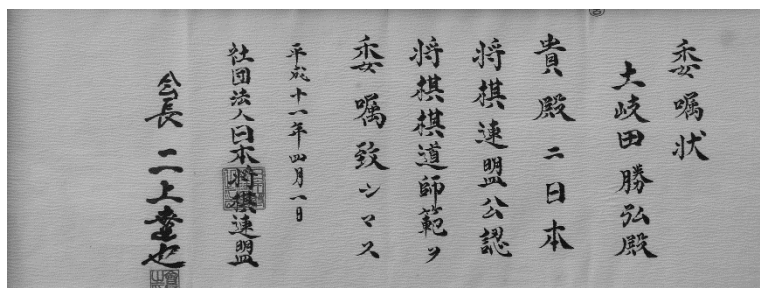 委嘱状
土岐田勝弘殿
貴殿ニ日本
将棋連盟公認
将棋棋道師範ヲ
委嘱致シマス
平成十一年四月一日
社団法人日本将棋連盟
会長 二上達也